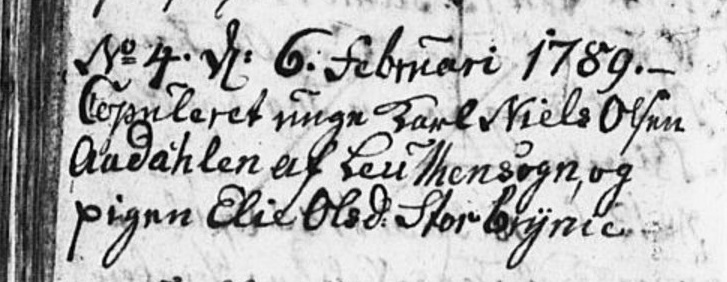 No 4. d: 6. Februari 1789.–
Copuleret unge Karl Niels Olsen
Aadahlen af Leuthensogn, og
pigen Elie Olsd: Stor Brÿnie